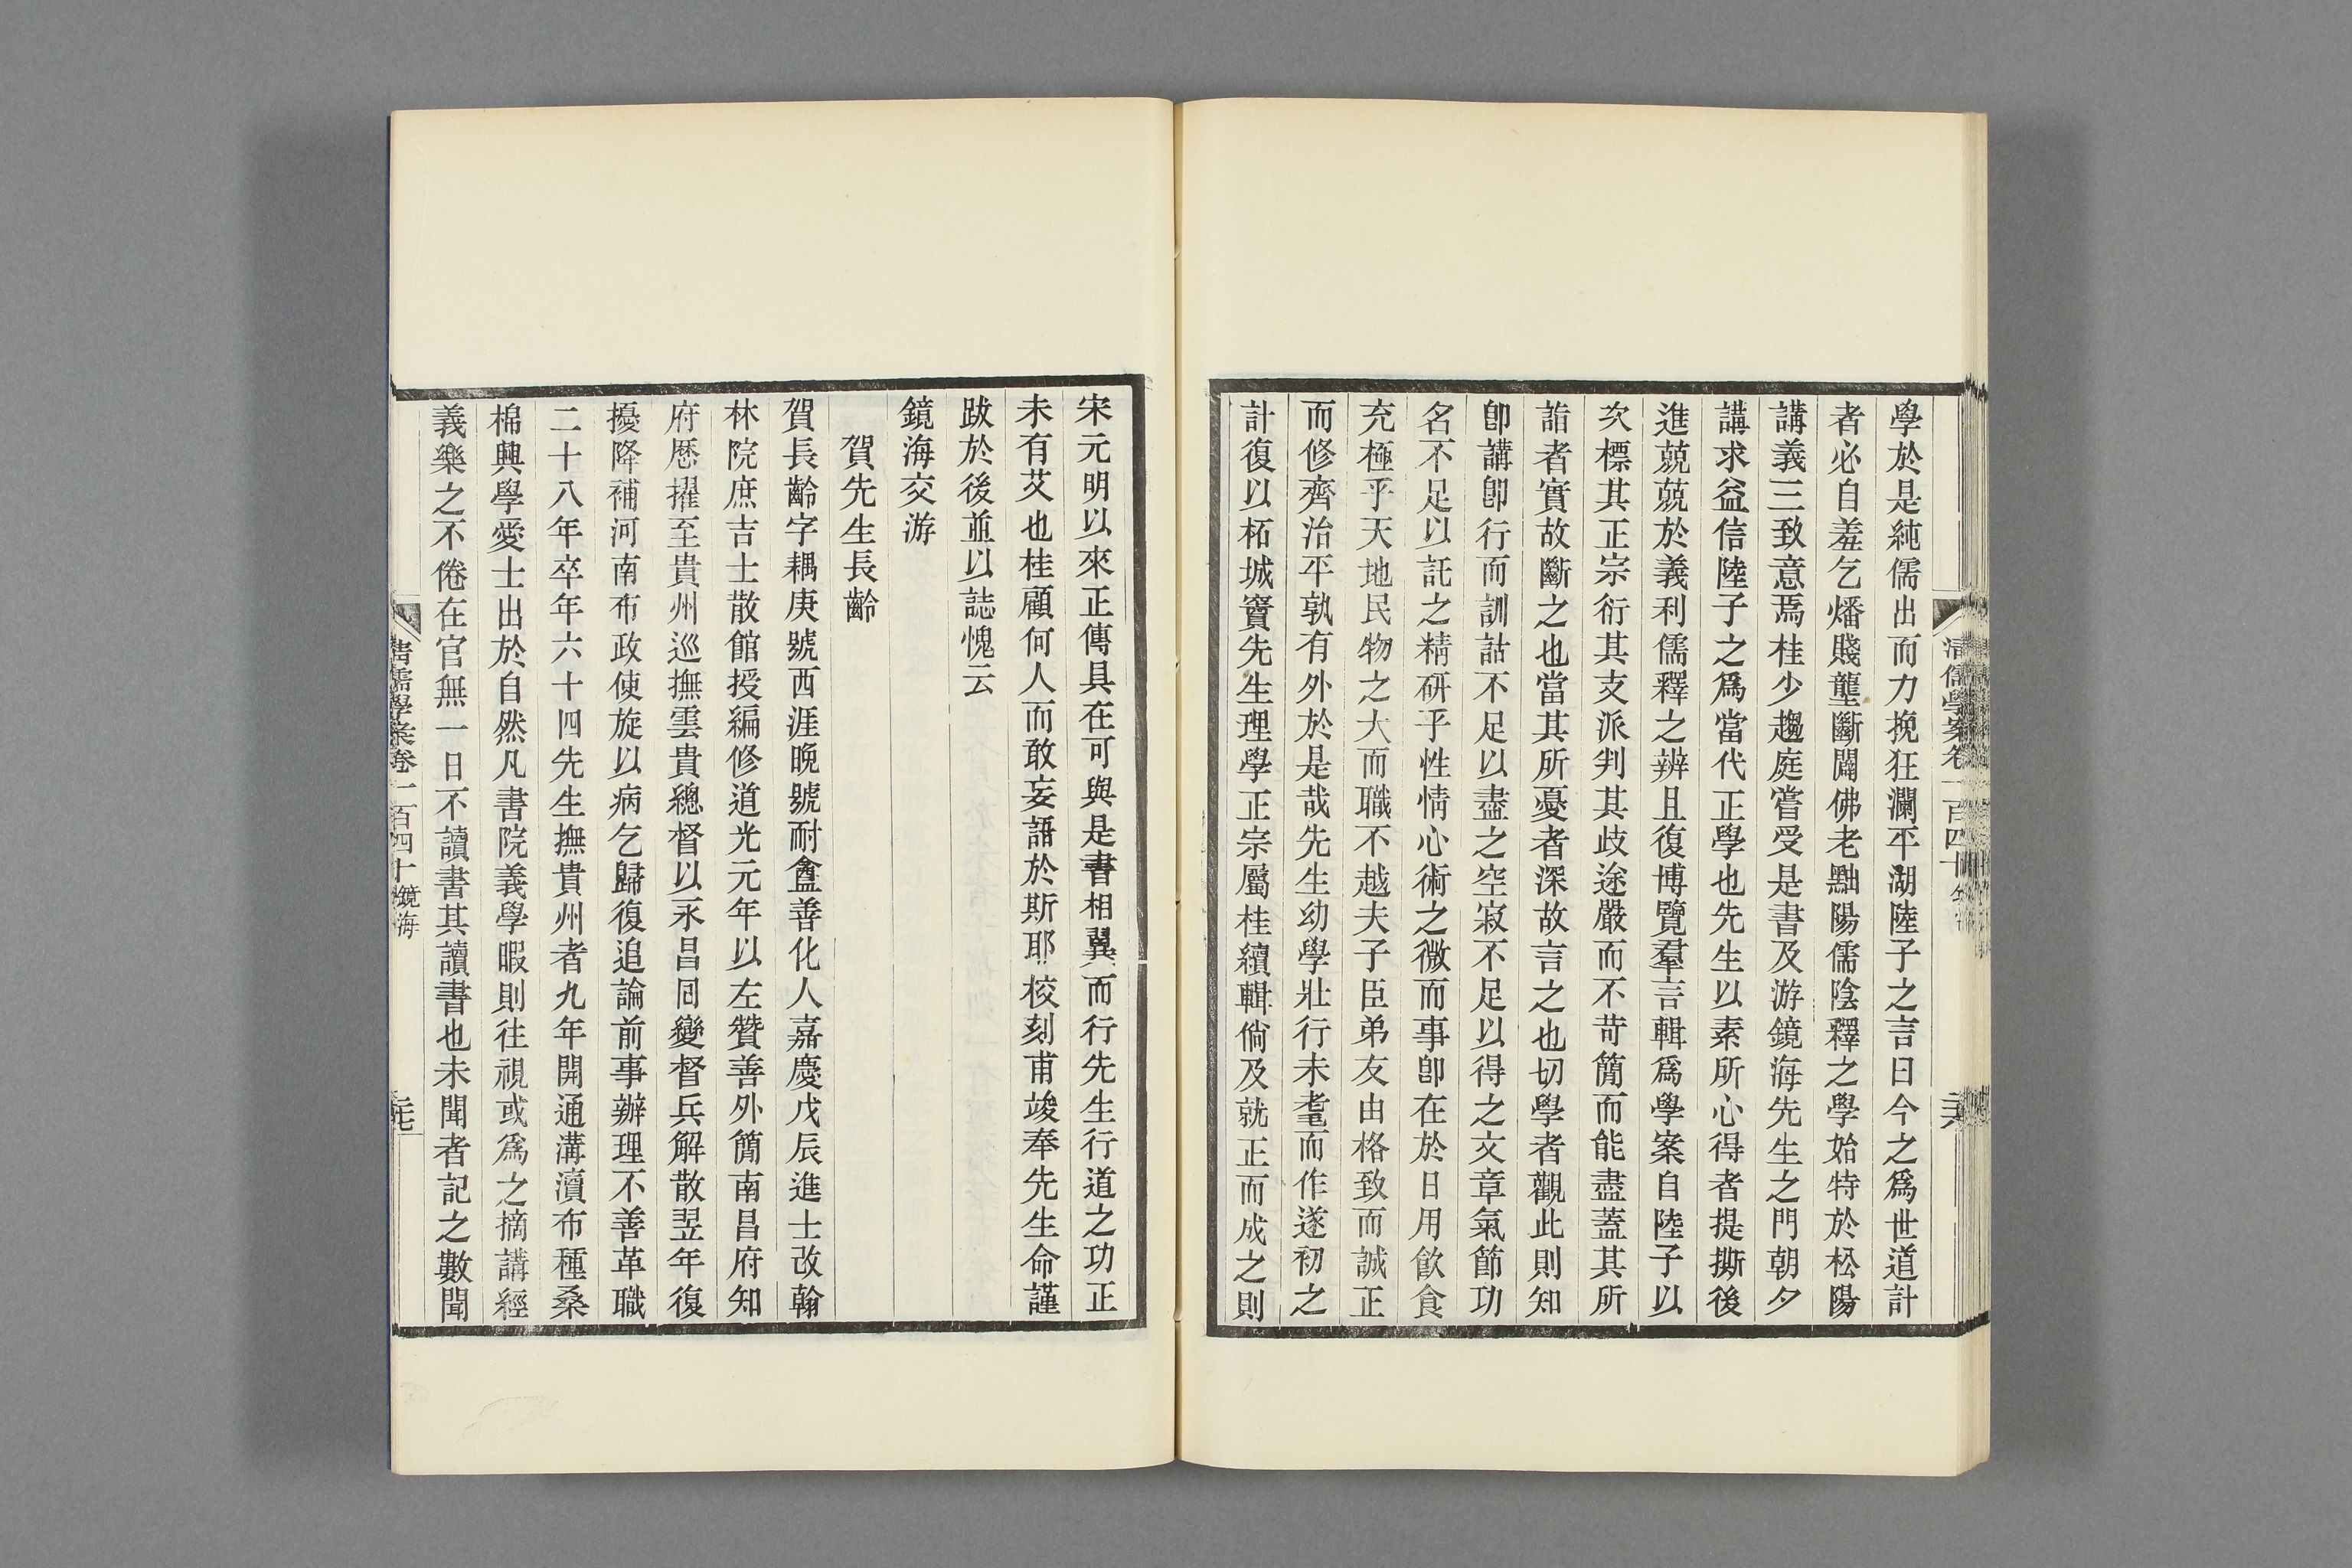 學於是純儒出而力挽狂瀾平湖陸子之言曰今之爲世道計
者必自羞乞燔賤壟斷闢佛老黜陽儒陰釋之學始特於松陽
講義三致意焉桂少趨庭嘗受是書及游鏡海先生之門朝夕
講求益信陸子之爲當代正學也先生以素所心得者提撕後
進兢兢於義利儒釋之辨且復博覽羣言輯爲學案自陸子以
次標其正宗衍其支派判其歧途嚴而不苛簡而能盡蓋其所
詣者實故斷之也當其所憂者深故言之也切學者觀此則知
卽講卽行而訓詁不足以盡之空寂不足以得之文章氣節功
名不足以託之精研乎性情心術之微而事卽在於日用飮食
充極乎天地民物之大而職不越夫子臣弟友由格致而誠正
而修齊治平孰有外於是哉先生幼學壯行未耄而作遂初之
計復以柘城竇先生理學正宗屬桂續輯倘及就正而成之則
宋元明以來正傳具在可與是書相翼而行先生行道之功正
未有艾也桂顧何人而敢妄語於斯耶校刻甫竣奉先生命謹
跋於後並以誌愧云
鏡海交游
賀先生長齡
賀長齡字耦庚號西涯晚號耐盦善化人嘉慶戊辰進士改翰
林院庶吉士散館授編修道光元年以左贊善外簡南昌府知
府歷擢至貴州巡撫雲貴總督以永昌回變督兵解散翌年復
擾降補河南布政使旋以病乞歸復追論前事辦理不善革職
二十八年卒年六十四先生撫貴州者九年開通溝瀆布種桑
棉興學愛士出於自然凡書院義學暇則往視或爲之摘講經
義樂之不倦在官無一日不讀書其讀書也未聞者記之數聞
清儒學案卷一百四十 鏡海
二七